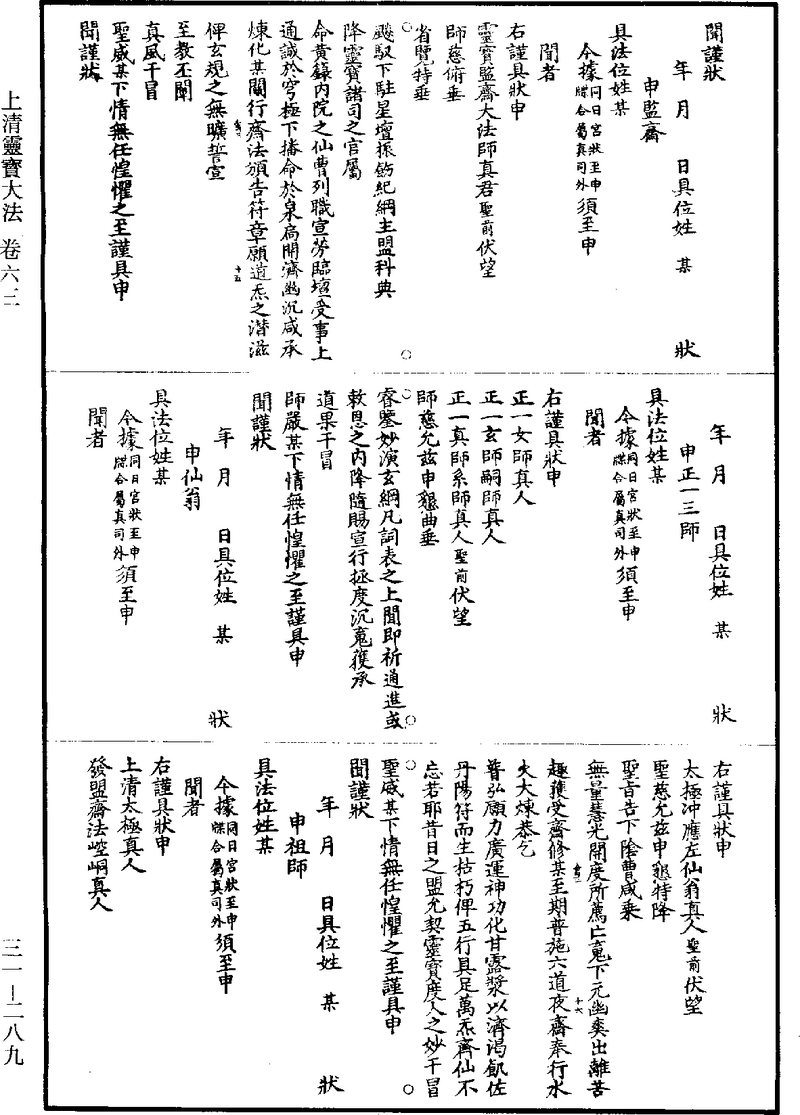 聞謹狀
年　月　　日具位姓　某　　　狀
申監齋
具法位姓某
今據同日宮狀至申牒合屬真司外須至申
聞者
右謹具狀申
靈寶監齋大法師真君聖前伏望
師慈俯垂
省覽特垂
飈馭下駐星壇振飭紀綱主盟科典
降靈寶諸司之官屬
命黃籙內院之仙曹列職宣勞臨壇受事上
通誠於穹極下播命於泉扃開濟幽沉咸承
煉化某闡行齋法頒告符章願道炁之潛滋
俾玄規之無曠誓宣
至教丕闡
真風干冒
聖威某下情無任惶懼之至謹具申
聞謹狀
年　月　　日具位姓　某　　　狀
申正一三師
具法位姓某
今據同日宮狀至申牒合屬真司外須至申
聞者
右謹具狀申
正一女師真人
正一玄師嗣師真人
正一真師系師真人聖前伏望
師慈允茲申懇曲垂
睿鑒妙演玄綱凡詞表之上聞即祈通進或
敕恩之內降隨賜宣行拯度沉蒐獲承
道果干冒
師嚴某下情無任惶懼之至謹具申
聞謹狀
年　月　　日具位姓　某　　　狀
申仙翁
具法位姓某
今據同日宮狀至申牒合屬真司外須至申
聞者
右謹具狀申
太極沖應左仙翁真人聖前伏望
聖慈允茲申懇特降
聖旨告下陰曹咸乘
無量慧光開度所薦亡魂下元幽爽出離苦
趣獲受齋修某至期普施六道夜齋奉行水
火大煉恭乞
普弘願力廣運神功化甘露漿以濟渴飢佐
丹陽符而生枯朽俾五行具足萬炁齊仙不
忘若耶昔日之盟允契靈寶度人之妙干冒
聖威某下情無任惶懼之至謹具申
聞謹狀
年　月　　日具位姓　某　　　狀
申祖師
具法位姓某
今據同日宮狀至申牒合屬真司外須至申
聞者
右謹具狀申
上清太極真人
發盟齋法崆峒真人
上清靈寶大法　卷六三
三一—二八九